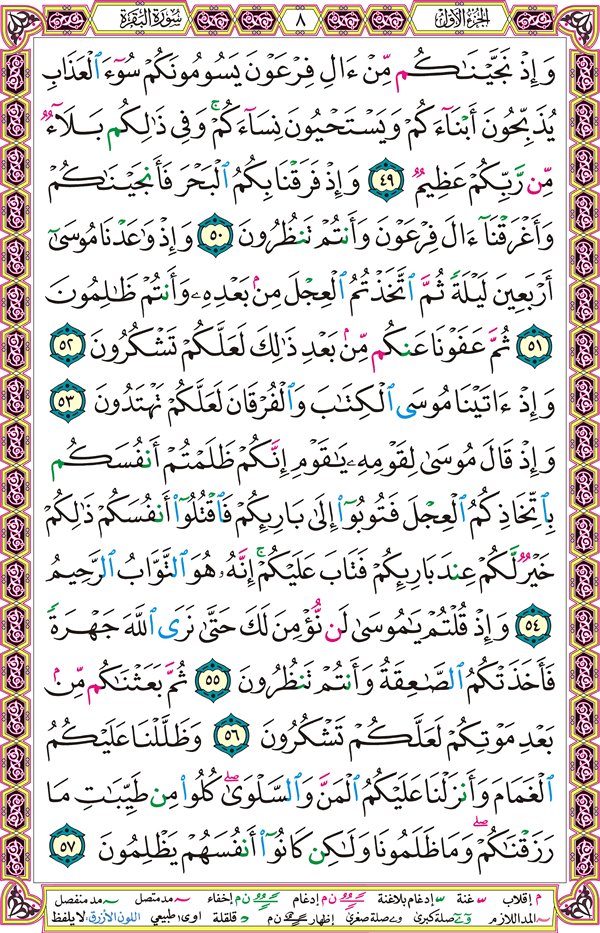 سُورَةُ البَقَرَةِ ٨ الجُزْءُ الأَوَّلُ
وَإِذْ نَجَّيْنَاكُم مِّنْ ءَالِ فِرْعَوْنَ يَسُومُونَكُمْ سُوٓءَ الْعَذَابِ
يُذَبِّحُونَ أَبْنَآءَكُمْ وَيَسْتَحْيُونَ نِسَآءَكُمْ ۚ وَفِي ذَٰلِكُم بَلَآءٌ
مِّن رَّبِّكُمْ عَظِيمٌ ٤٩ وَإِذْ فَرَقْنَا بِكُمُ الْبَحْرَ فَأَنجَيْنَاكُمْ
وَأَغْرَقْنَآ ءَالَ فِرْعَوْنَ وَأَنتُمْ تَنظُرُونَ ٥٠ وَإِذْ وَٰعَدْنَا مُوسَىٰٓ
أَرْبَعِينَ لَيْلَةً ثُمَّ اتَّخَذْتُمُ الْعِجْلَ مِنۢ بَعْدِهِۦ وَأَنتُمْ ظَالِمُونَ
٥١ ثُمَّ عَفَوْنَا عَنكُم مِّنۢ بَعْدِ ذَٰلِكَ لَعَلَّكُمْ تَشْكُرُونَ ٥٢
وَإِذْ ءَاتَيْنَا مُوسَى الْكِتَٰبَ وَالْفُرْقَانَ لَعَلَّكُمْ تَهْتَدُونَ ٥٣
وَإِذْ قَالَ مُوسَىٰ لِقَوْمِهِۦ يَٰقَوْمِ إِنَّكُمْ ظَلَمْتُمْ أَنفُسَكُم
بِاتِّخَاذِكُمُ الْعِجْلَ فَتُوبُوٓا إِلَىٰ بَارِئِكُمْ فَاقْتُلُوٓا أَنفُسَكُمْ ذَٰلِكُمْ
خَيْرٌ لَّكُمْ عِندَ بَارِئِكُمْ فَتَابَ عَلَيْكُمْ ۚ إِنَّهُۥ هُوَ التَّوَّابُ الرَّحِيمُ
٥٤ وَإِذْ قُلْتُمْ يَٰمُوسَىٰ لَن نُّؤْمِنَ لَكَ حَتَّىٰ نَرَى اللَّهَ جَهْرَةً
فَأَخَذَتْكُمُ الصَّٰعِقَةُ وَأَنتُمْ تَنظُرُونَ ٥٥ ثُمَّ بَعَثْنَاكُم مِّنۢ
بَعْدِ مَوْتِكُمْ لَعَلَّكُمْ تَشْكُرُونَ ٥٦ وَظَلَّلْنَا عَلَيْكُمُ
الْغَمَامَ وَأَنزَلْنَا عَلَيْكُمُ الْمَنَّ وَالسَّلْوَىٰ ۖ كُلُوا مِن طَيِّبَٰتِ مَا
رَزَقْنَٰكُمْ ۖ وَمَا ظَلَمُونَا وَلَٰكِن كَانُوٓا أَنفُسَهُمْ يَظْلِمُونَ ٥٧
م إقلاب غنة إدغام بلاغنة ن م إدغام ن م إخفاء مد متصل مد منفصل
المد اللازم و ے صلة كبرى و ے صلة صغرى إظهار ن م قلقلة اوى: طبيعي اللون الأزرق: لا يلفظ